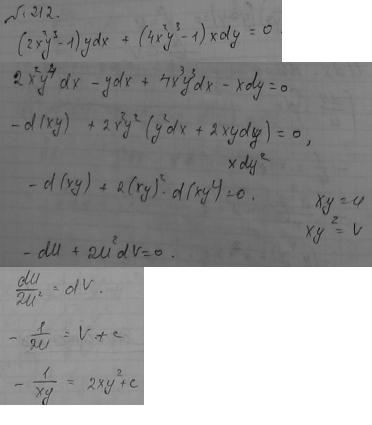 № 212.
(2x²y³-1)ydx + (4x²y³-1)xdy = 0.
2x²y⁴dx - ydx + 4x³y³dx - xdy = 0
-d(xy) + 2x²y²(y²dx + 2xydy) = 0,
xdy²
-d(xy) + 2(xy)² · d(xy²) = 0.
xy = u
xy² = V
-du + 2u²dV = 0.
du/2u² = dV.
- 1/2u = V + c
- 1/xy = 2xy² + c